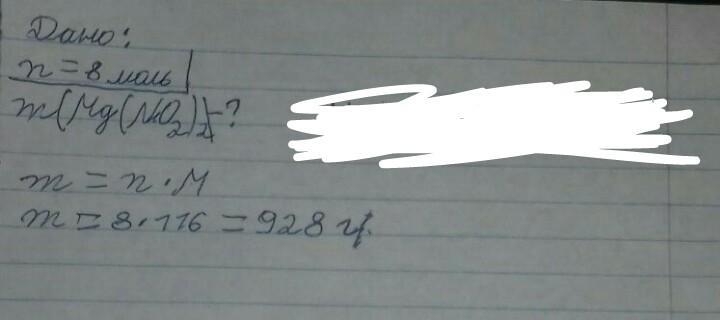 Дано:
n = 8 моль
m(Mg(NO₂)₂)-?
m = n · M
m = 8 · 116 = 928 г.